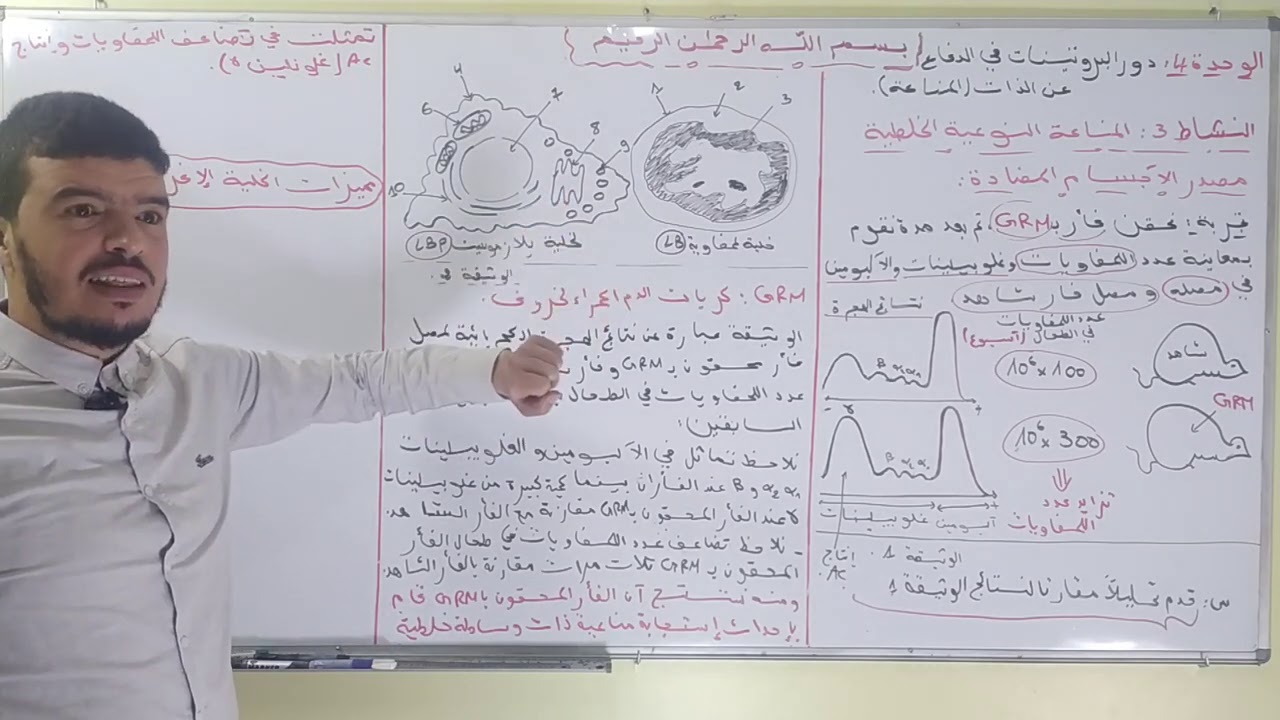 بسم الله الرحمان الرحيم
الوحدة 4: دور البروتينات في الدفاع
عن الذات (المناعة).
النشاط 3: المناعة النوعية الخلطية
مصدر الأجسام المضادة:
تجربة: نحقن فأر بـ GRM، ثم بعد مدة نقوم
بمعاينة عدد اللمفاويات وغلوبيلينات والألبومين
في مصله ومصل فأر شاهد
نتائج الهجرة
عدد اللمفاويات
في الطحال (أسبوع)
10⁶ x 100
شاهد
- γ β α₂ α₁ +
GRM
10⁶ x 300
β α₂ α₁
تزايد عدد
اللمفاويات
ألبومين غلوبيلينات
إنتاج
Ac
الوثيقة 1.
س: قدم تحليلا مقارنا لنتائج الوثيقة 1
4 7 6 8 9 10
1 2 3
خلية لمفاوية LB
LBP
الوثيقة 2.
GRM: كريات الدم الحمراء لخروف.
الوثيقة عبارة عن نتائج
لمصل
فأر محقون بـ GRM
عدد اللمفاويات في الطحال
السابقين:
نلاحظ تماثل في الألبومين و الغلوبيلينات
α₁ α₂ و β عند الفأران بينما كمية كبيرة من غلوبيلينات
γ عند الفأر المحقون بـ GRM مقارنة مع الفأر الشاهد.
- نلاحظ تضاعف عدد اللمفاويات في طحال الفأر
المحقون بـ GRM ثلاث مرات مقارنة بالفأر الشاهد.
ومنه نستنتج أن الفأر المحقون بـ GRM قام
بإحداث إستجابة مناعية ذات وساطة خلطية
تمثلت في تضاعف اللمفاويات وإنتاج
Ac (غلوبلين γ).
مميزات الخلية